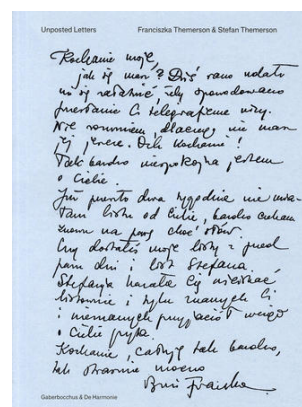 Unposted Letters
Franciszka Themerson & Stefan Themerson
Kochanie moje,
jak się masz? Dziś rano udało
mi się załatwić żeby spowodowano
przesłanie Ci telegrafem wizy.
Nie rozumiem, dlaczego nie masz
jej jeszcze. Och kochanie!
Tak bardzo niespokojna jestem
o Ciebie.
Już ponad dwa tygodnie nie mia-
łam listu od Ciebie, bardzo czekam
znowu na parę choć słów.
Czy dostałeś moje listy z przed
paru dni i list Stefana.
Stefania kazała Cię uściskać
i tylu znanych Ci
i nieznanych przyjaciół wciąż
o Ciebie pyta.
Kochanie, całuję tak bardzo,
tak strasznie mocno
Franciszka
Gaberbocchus & De Harmonie